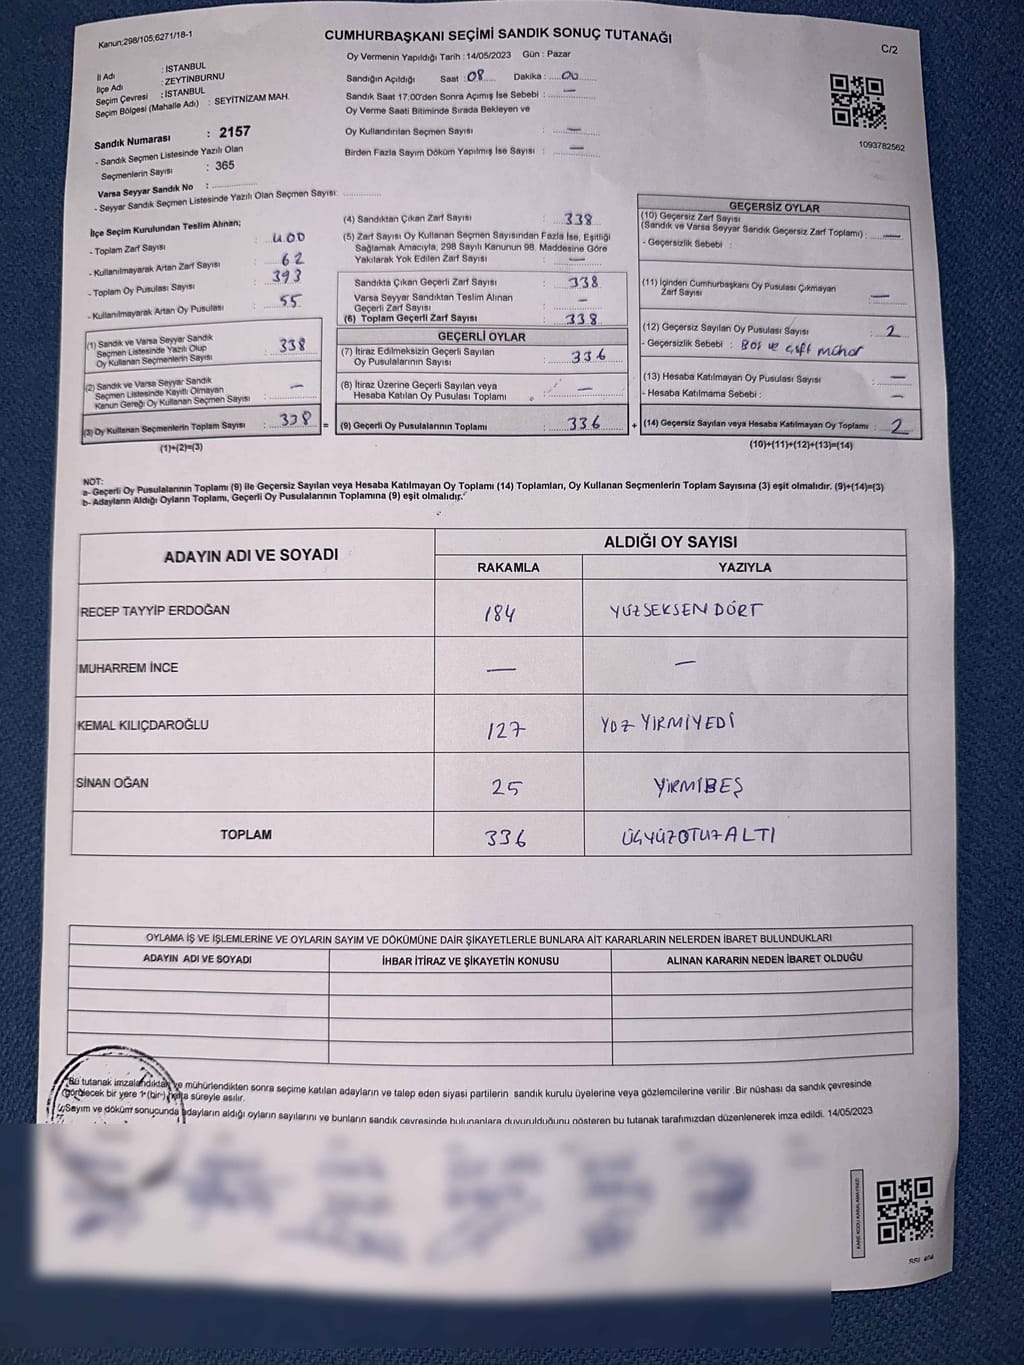 Kanun:298/105,6271/18-1
CUMHURBAŞKANI SEÇİMİ SANDIK SONUÇ TUTANAĞI
C/2
İl Adı : İSTANBUL
İlçe Adı : ZEYTİNBURNU
Seçim Çevresi : İSTANBUL
Seçim Bölgesi (Mahalle Adı) : SEYİTNİZAM MAH.
Sandık Numarası : 2157
- Sandık Seçmen Listesinde Yazılı Olan
Seçmenlerin Sayısı : 365
Varsa Seyyar Sandık No :
- Seyyar Sandık Seçmen Listesinde Yazılı Olan Seçmen Sayısı:
Oy Vermenin Yapıldığı Tarih : 14/05/2023 Gün : Pazar
Sandığın Açıldığı Saat : 08 Dakika : 00
Sandık Saat 17:00'den Sonra Açımış İse Sebebi : —
Oy Verme Saati Bitiminde Sırada Bekleyen ve
Oy Kullandırılan Seçmen Sayısı : —
Birden Fazla Sayım Döküm Yapılmış İse Sayısı : —
1093782562
İlçe Seçim Kurulundan Teslim Alınan;
- Toplam Zarf Sayısı : 400
- Kullanılmayarak Artan Zarf Sayısı : 62
- Toplam Oy Pusulası Sayısı : 393
- Kullanılmayarak Artan Oy Pusulası : 55
(1) Sandık ve Varsa Seyyar Sandık
Seçmen Listesinde Yazılı Olup
Oy Kullanan Seçmenlerin Sayısı : 338
(2) Sandık ve Varsa Seyyar Sandık
Seçmen Listesinde Kayıtlı Olmayan
Kanun Gereği Oy Kullanan Seçmen Sayısı : —
(3) Oy Kullanan Seçmenlerin Toplam Sayısı : 338 =
(1)+(2)=(3)
(4) Sandıktan Çıkan Zarf Sayısı : 338
(5) Zarf Sayısı Oy Kullanan Seçmen Sayısından Fazla İse, Eşitliği
Sağlamak Amacıyla, 298 Sayılı Kanunun 98. Maddesine Göre
Yakılarak Yok Edilen Zarf Sayısı : —
Sandıkta Çıkan Geçerli Zarf Sayısı : 338
Varsa Seyyar Sandıktan Teslim Alınan
Geçerli Zarf Sayısı : —
(6) Toplam Geçerli Zarf Sayısı : 338
GEÇERLİ OYLAR
(7) İtiraz Edilmeksizin Geçerli Sayılan
Oy Pusulalarının Sayısı : 336
(8) İtiraz Üzerine Geçerli Sayılan veya
Hesaba Katılan Oy Pusulası Toplamı : —
(9) Geçerli Oy Pusulalarının Toplamı : 336 +
GEÇERSİZ OYLAR
(10) Geçersiz Zarf Sayısı
(Sandık ve Varsa Seyyar Sandık Geçersiz Zarf Toplamı) : —
- Geçersizlik Sebebi :
(11) İçinden Cumhurbaşkanı Oy Pusulası Çıkmayan
Zarf Sayısı : —
(12) Geçersiz Sayılan Oy Pusulası Sayısı : 2
- Geçersizlik Sebebi : Boş ve çift mühür
(13) Hesaba Katılmayan Oy Pusulası Sayısı : —
- Hesaba Katılmama Sebebi : —
(14) Geçersiz Sayılan veya Hesaba Katılmayan Oy Toplamı : 2
(10)+(11)+(12)+(13)=(14)
NOT:
a- Geçerli Oy Pusulalarının Toplamı (9) ile Geçersiz Sayılan veya Hesaba Katılmayan Oy Toplamı (14) Toplamları, Oy Kullanan Seçmenlerin Toplam Sayısına (3) eşit olmalıdır. (9)+(14)=(3)
b- Adayların Aldığı Oyların Toplamı, Geçerli Oy Pusulalarının Toplamına (9) eşit olmalıdır.
ADAYIN ADI VE SOYADI
ALDIĞI OY SAYISI
RAKAMLA YAZIYLA
RECEP TAYYİP ERDOĞAN 184 YÜZSEKSEN DÖRT
MUHARREM İNCE — —
KEMAL KILIÇDAROĞLU 127 YÜZ YİRMİYEDİ
SİNAN OĞAN 25 YİRMİBEŞ
TOPLAM 336 ÜÇYÜZOTUZALTI
OYLAMA İŞ VE İŞLEMLERİNE VE OYLARIN SAYIM VE DÖKÜMÜNE DAİR ŞİKAYETLERLE BUNLARA AİT KARARLARIN NELERDEN İBARET BULUNDUKLARI
ADAYIN ADI VE SOYADI İHBAR İTİRAZ VE ŞİKAYETİN KONUSU ALINAN KARARIN NEDEN İBARET OLDUĞU
Bu tutanak imzalandıktan ve mühürlendikten sonra seçime katılan adayların ve talep eden siyasi partilerin sandık kurulu üyelerine veya gözlemcilerine verilir. Bir nüshası da sandık çevresinde
görülecek bir yere 1 (bir) hafta süreyle asılır.
Sayım ve döküm sonucunda adayların aldığı oyların sayılarını ve bunların sandık çevresinde bulunanlara duyurulduğunu gösteren bu tutanak tarafımızdan düzenlenerek imza edildi. 14/05/2023